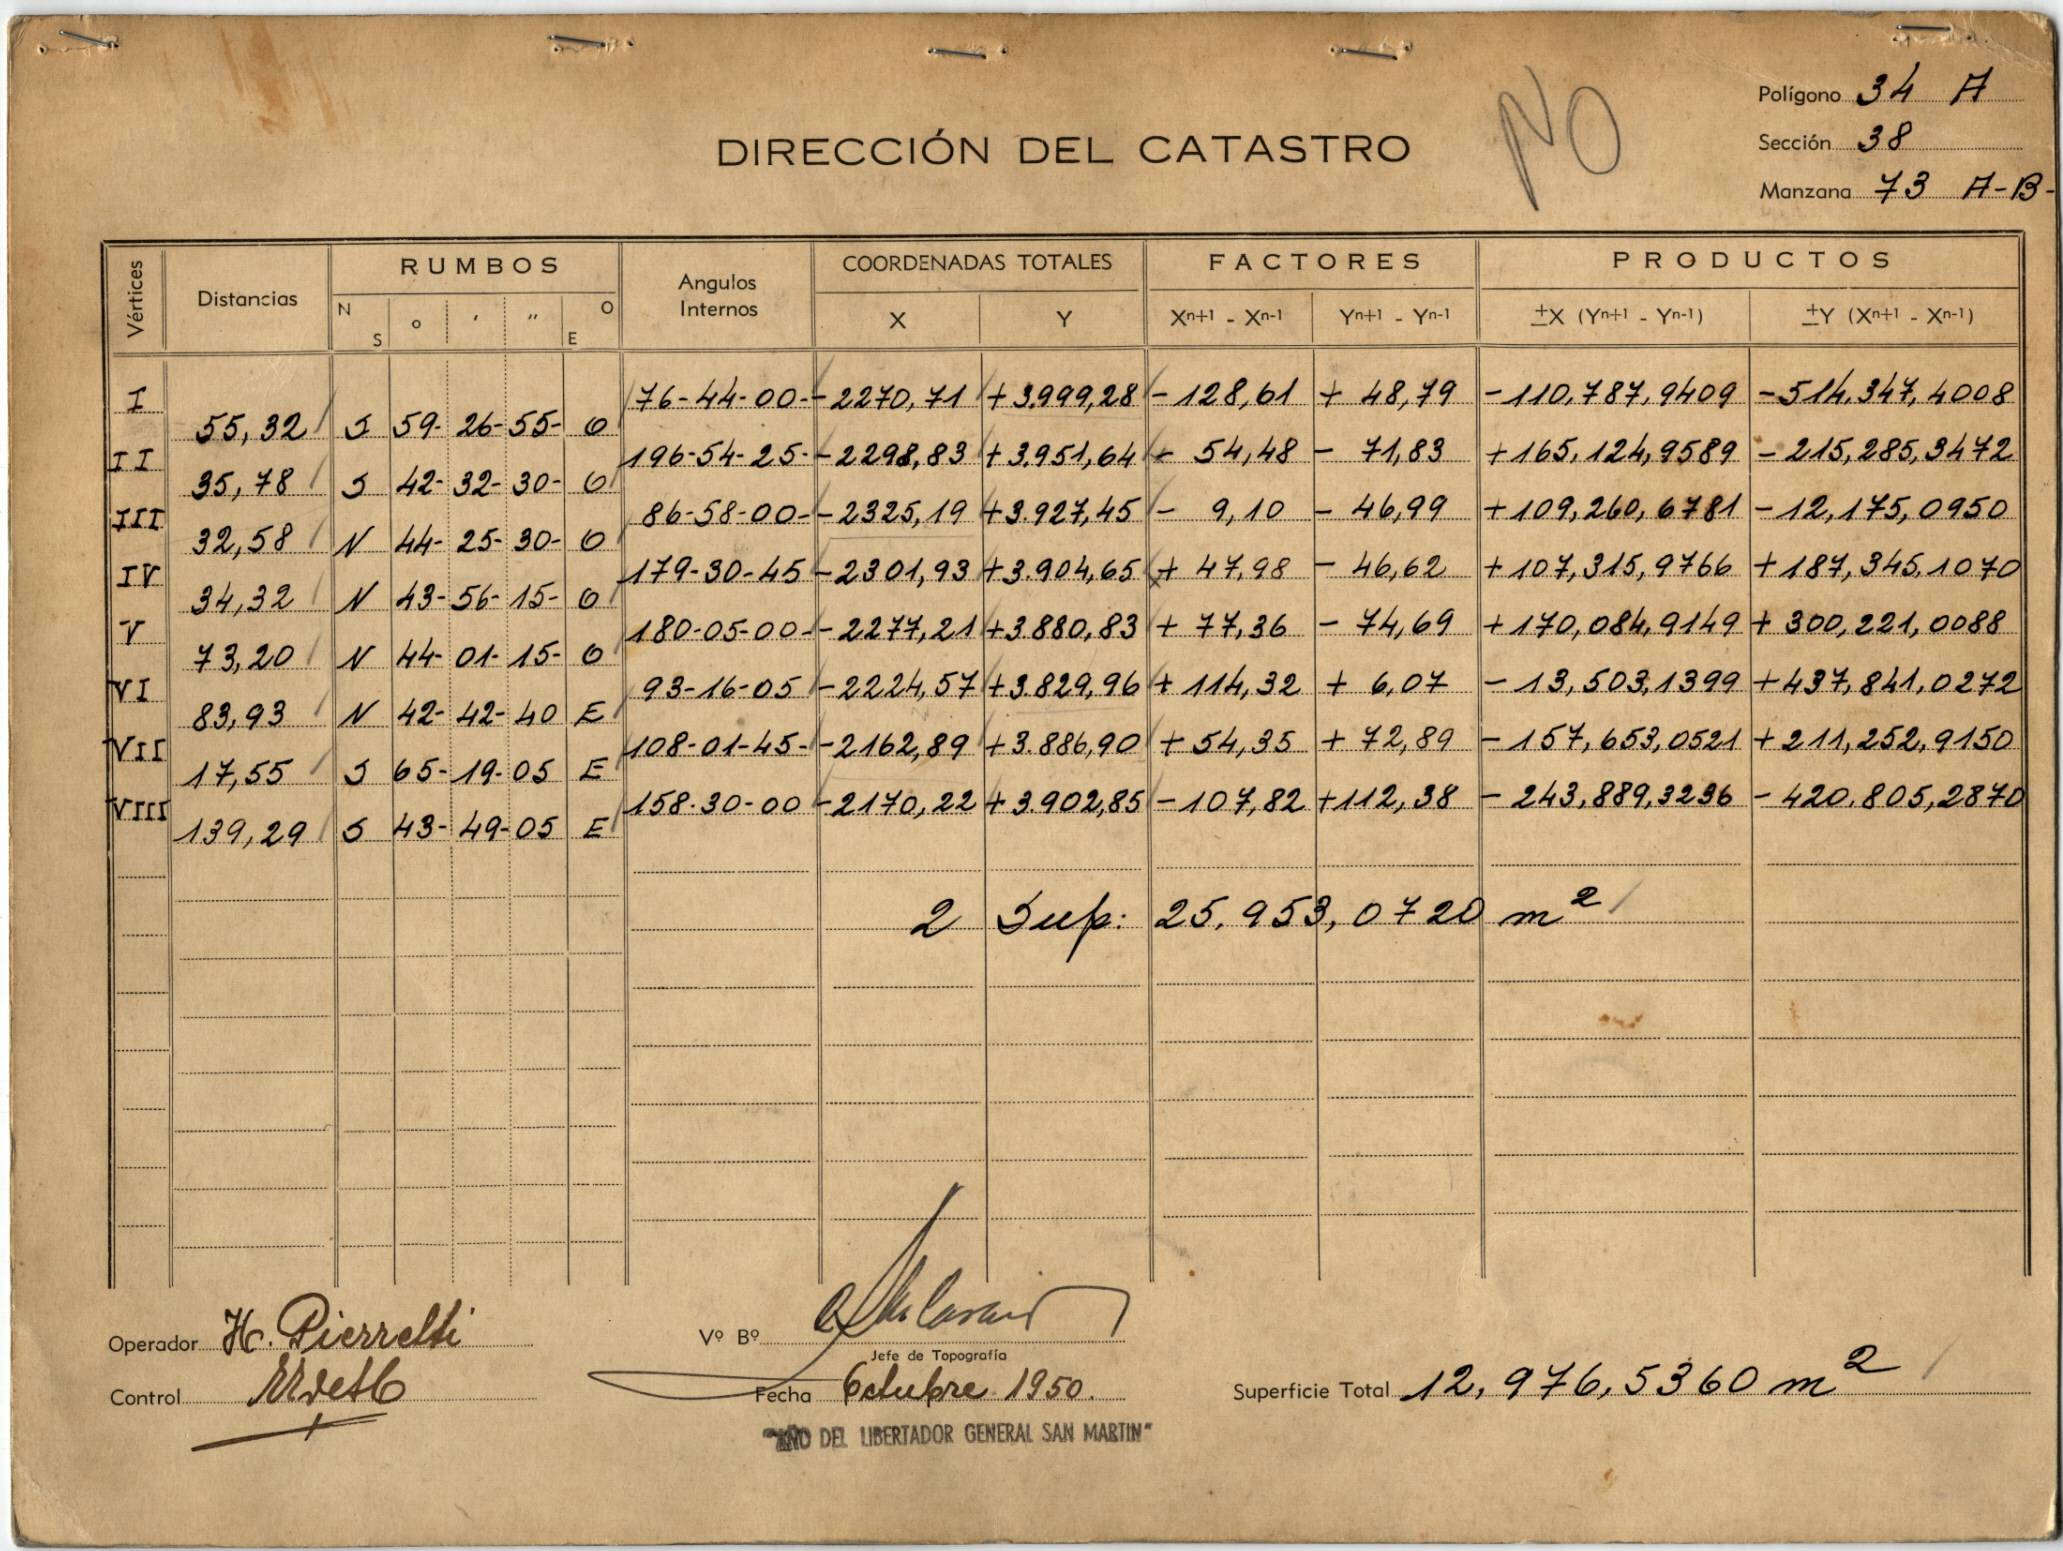 NO
Polígono 34 A
Sección 38
Manzana 73 A-B-
DIRECCIÓN DEL CATASTRO
Vértices Distancias RUMBOS Angulos Internos COORDENADAS TOTALES FACTORES PRODUCTOS
N S o ' " E O X Y Xn+1 - Xn-1 Yn+1 - Yn-1 ±X (Yn+1 - Yn-1) ±Y (Xn+1 - Xn-1)
I 76-44-00- -2270,71 +3.999,28 -128,61 + 48,79 -110,787,9409 -514,347,4008
55,32 S 59- 26- 55- O
II 196-54-25- -2298,83 +3.951,64 - 54,48 - 71,83 +165,124,9589 -215,285,3472
35,78 S 42- 32- 30- O
III 86-58-00- -2325,19 +3.927,45 - 9,10 - 46,99 +109,260,6781 -12,175,0950
32,58 N 44- 25- 30- O
IV 179-30-45 -2301,93 +3.904,65 + 47,98 - 46,62 +107,315,9766 +187,345,1070
34,32 N 43- 56- 15- O
V 180-05-00- -2277,21 +3.880,83 + 77,36 - 74,69 +170,084,9149 +300,221,0088
73,20 N 44- 01- 15- O
VI 93-16-05 -2224,57 +3.829,96 +114,32 + 6,07 -13,503,1399 +437,841,0272
83,93 N 42- 42- 40 E
VII 108-01-45- -2162,89 +3.886,90 +54,35 + 72,89 -157,653,0521 +211,252,9150
17,55 S 65- 19- 05 E
VIII 158-30-00 -2170,22 +3.902,85 -107,82 +112,38 - 243,889,3236 - 420.805,2870
139,29 S 43- 49- 05 E
2 Sup: 25.953,0720 m²
Operador H. Pierretti
Control
Vº Bº
Jefe de Topografía
Fecha Octubre 1950.
Superficie Total 12,976,5360 m²
"AÑO DEL LIBERTADOR GENERAL SAN MARTIN"